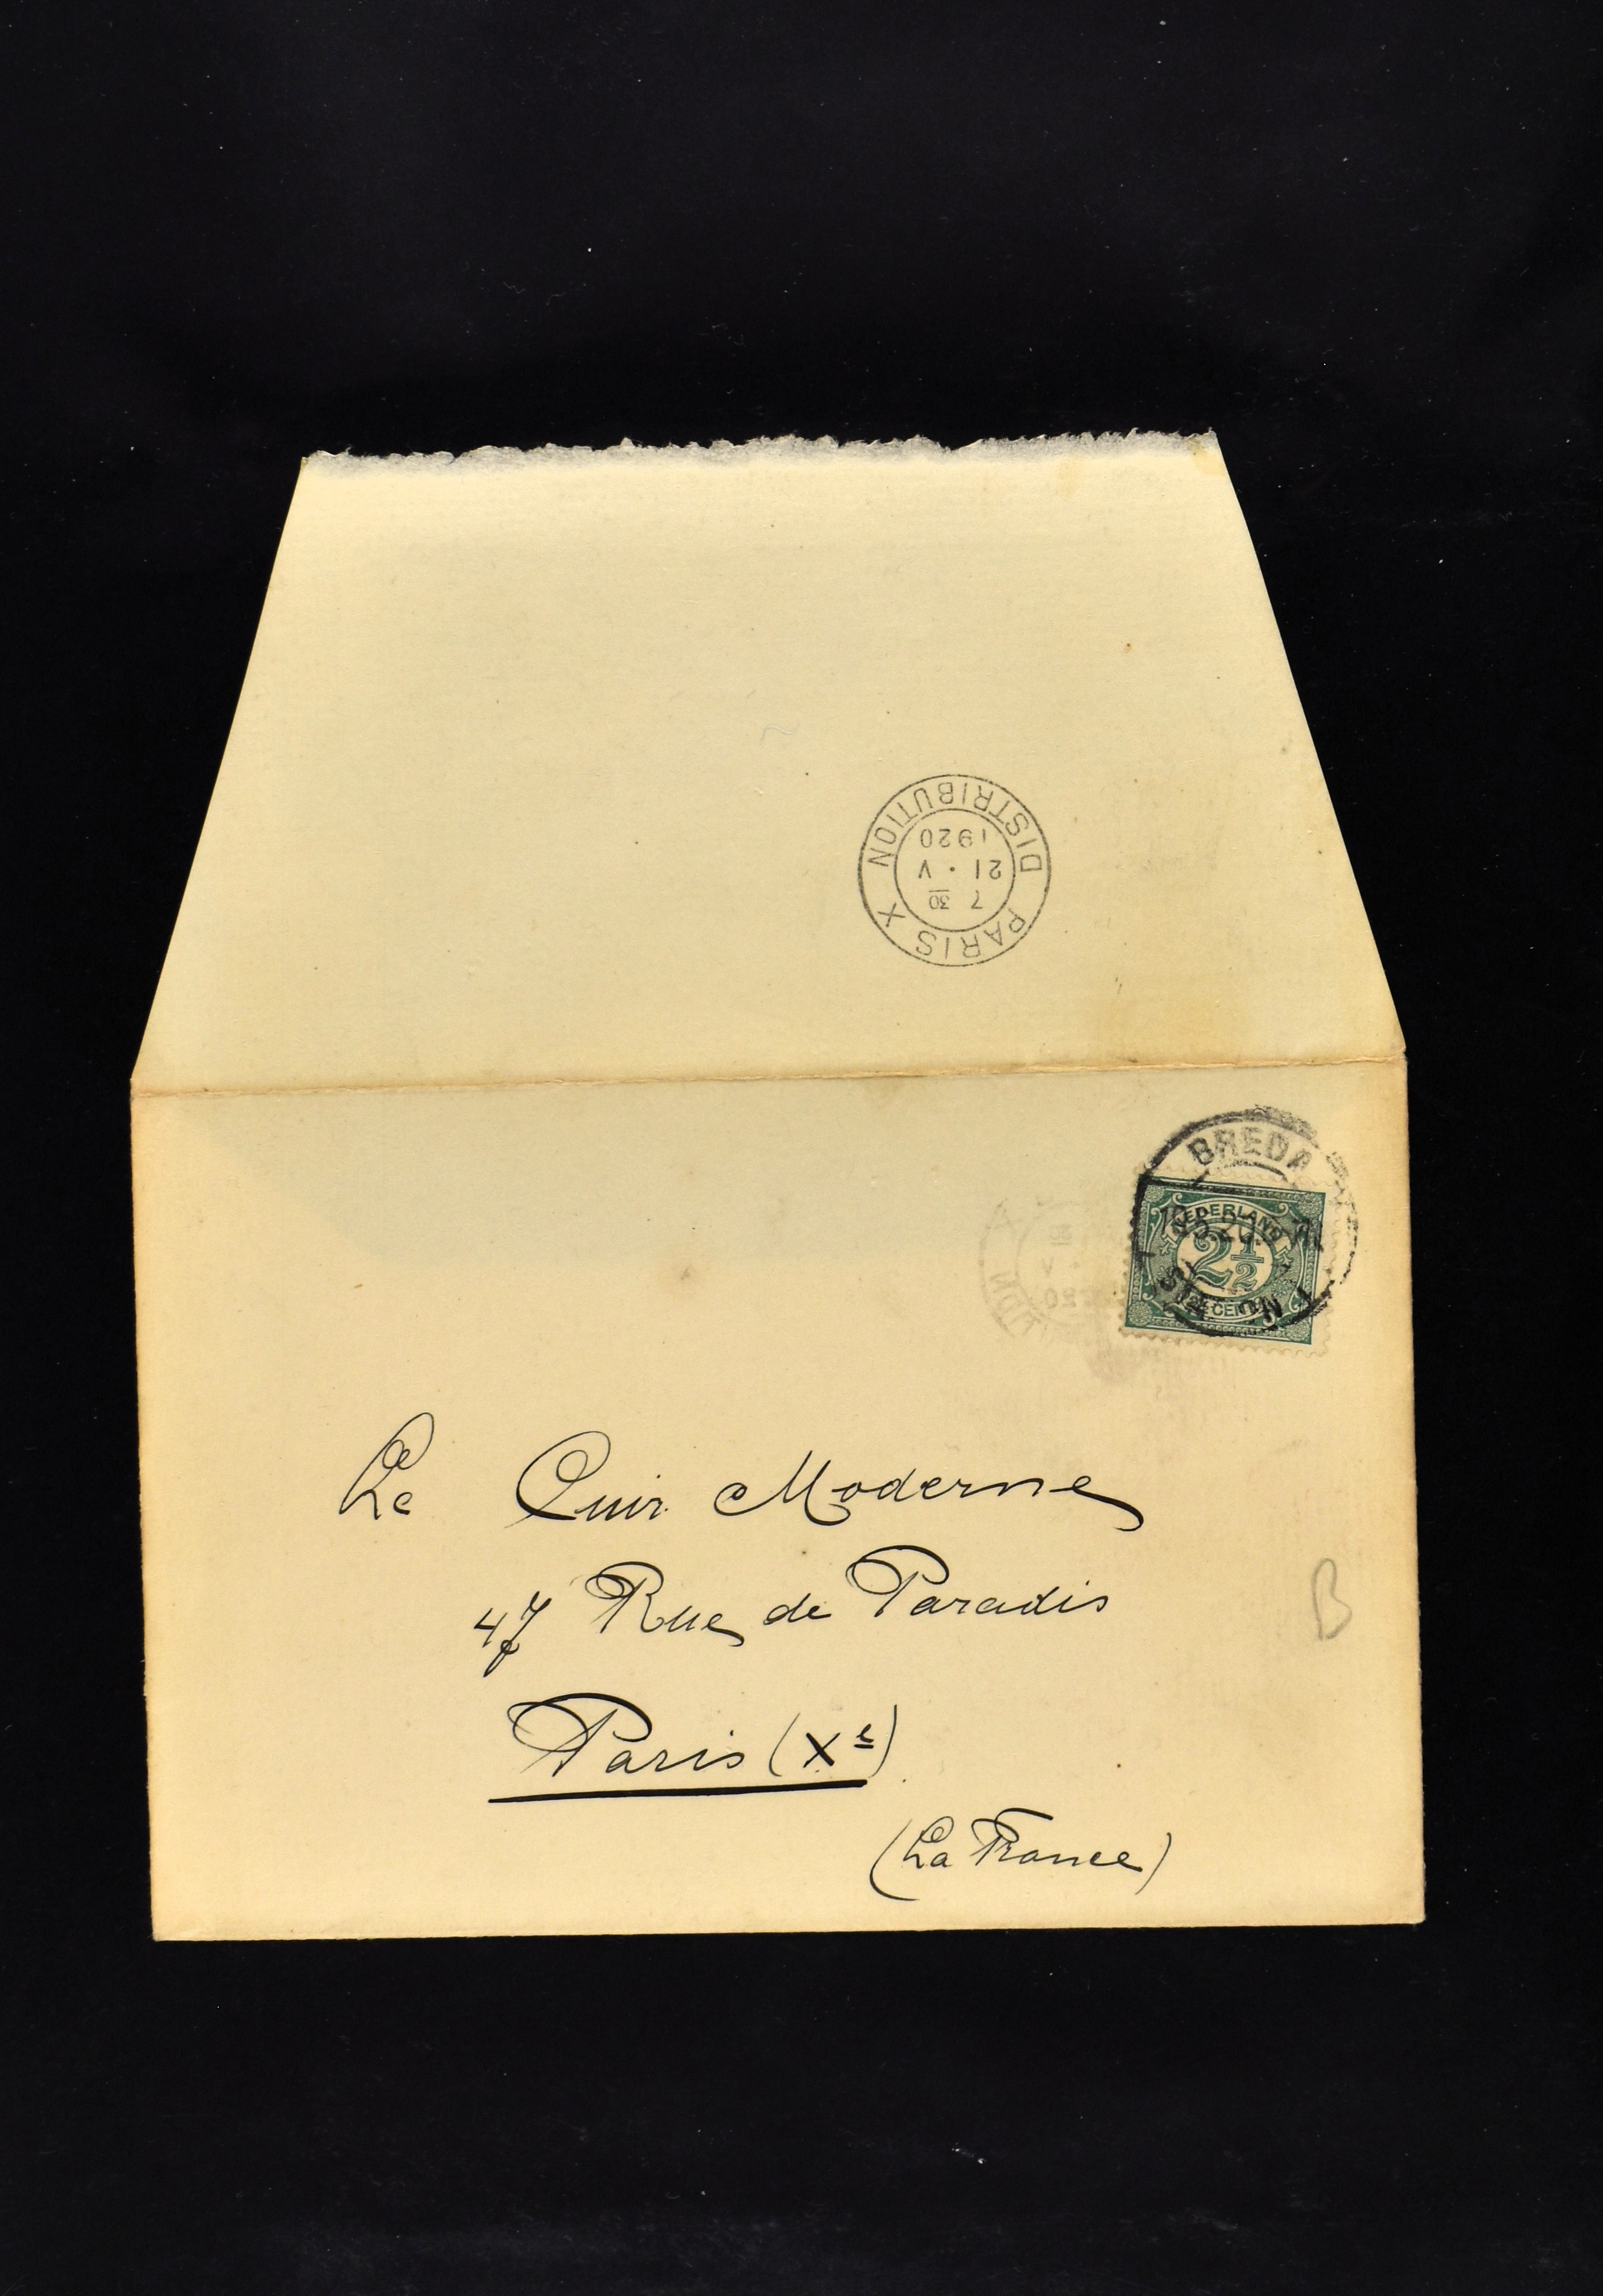 PARIS X
7 30
21 · V
1920
DISTRIBUTION
BREDA
STATION
NEDERLAND
2½
2½ CENT
Le Cuir Moderne
47 Rue de Paradis
Paris (Xe)
(La France)
B